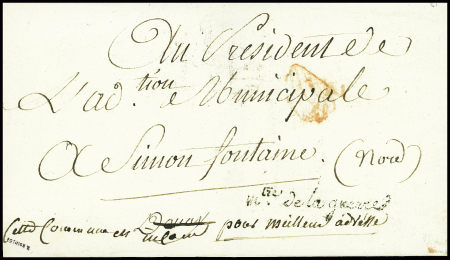 Au Président de
L'ad.tion e Municipale
A Simon fontaine. (Nord)
mtre de la guerre
Cette Commune est Douay pour meilleure adresse